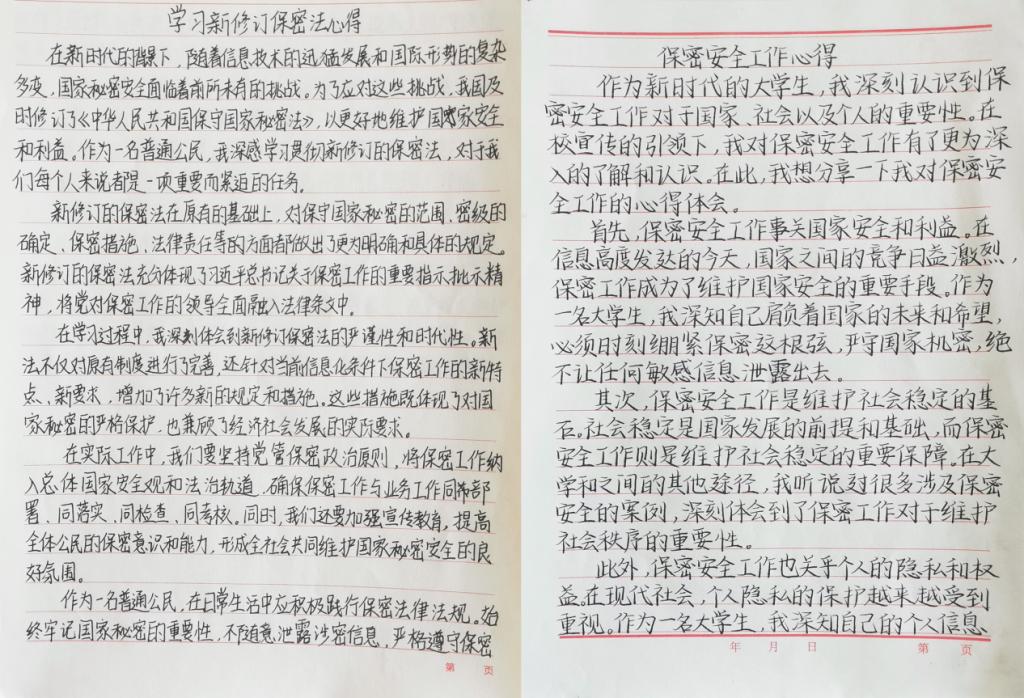 学习新修订保密法心得
在新时代的背景下，随着信息技术的迅猛发展和国际形势的复杂
多变，国家秘密安全面临着前所未有的挑战。为了应对这些挑战，我国及
时修订了《中华人民共和国保守国家秘密法》，以更好地维护国家安全
和利益。作为一名普通公民，我深感学习贯彻新修订的保密法，对于我
们每个人来说都是一项重要而紧迫的任务。
新修订的保密法在原有的基础上，对保守国家秘密的范围、密级的
确定、保密措施、法律责任等的方面都做出了更为明确和具体的规定。
新修订的保密法充分体现了习近平总书记关于保密工作的重要指示批示精
神，将党对保密工作的领导全面融入法律条文中。
在学习过程中，我深刻体会到新修订保密法的严谨性和时代性。新
法不仅对原有制度进行了完善，还针对当前信息化条件下保密工作的新特
点、新要求，增加了许多新的规定和措施。这些措施既体现了对国
家秘密的严格保护，也兼顾了经济社会发展的实际要求。
在实际工作中，我们要坚持党管保密政治原则，将保密工作纳
入总体国家安全观和法治轨道，确保保密工作与业务工作同部
署、同落实、同检查、同考核。同时，我们还要加强宣传教育，提高
全体公民的保密意识和能力，形成全社会共同维护国家秘密安全的良
好氛围。
作为一名普通公民，在日常生活中应积极践行保密法律法规。始
终牢记国家秘密的重要性，不随意泄露涉密信息，严格遵守保密
第 页
保密安全工作心得
作为新时代的大学生，我深刻认识到保
密安全工作对于国家、社会以及个人的重要性。在
校宣传的引领下，我对保密安全工作有了更为深
入的了解和认识。在此，我想分享一下我对保密安
全工作的心得体会。
首先，保密安全工作事关国家安全和利益。在
信息高度发达的今天，国家之间的竞争日益激烈，
保密工作成为了维护国家安全的重要手段。作为
一名大学生，我深知自己肩负着国家的未来和希望，
必须时刻绷紧保密这根弦，严守国家机密，绝
不让任何敏感信息泄露出去。
其次，保密安全工作是维护社会稳定的基
石。社会稳定是国家发展的前提和基础，而保密
安全工作则是维护社会稳定的重要保障。在大
学和之间的其他途径，我听说过很多涉及保密
安全的案例，深刻体会到了保密工作对于维护
社会秩序的重要性。
此外，保密安全工作也关乎个人的隐私和权
益。在现代社会，个人隐私的保护越来越受到
重视。作为一名大学生，我深知自己的个人信息、
年 月 日 第 页